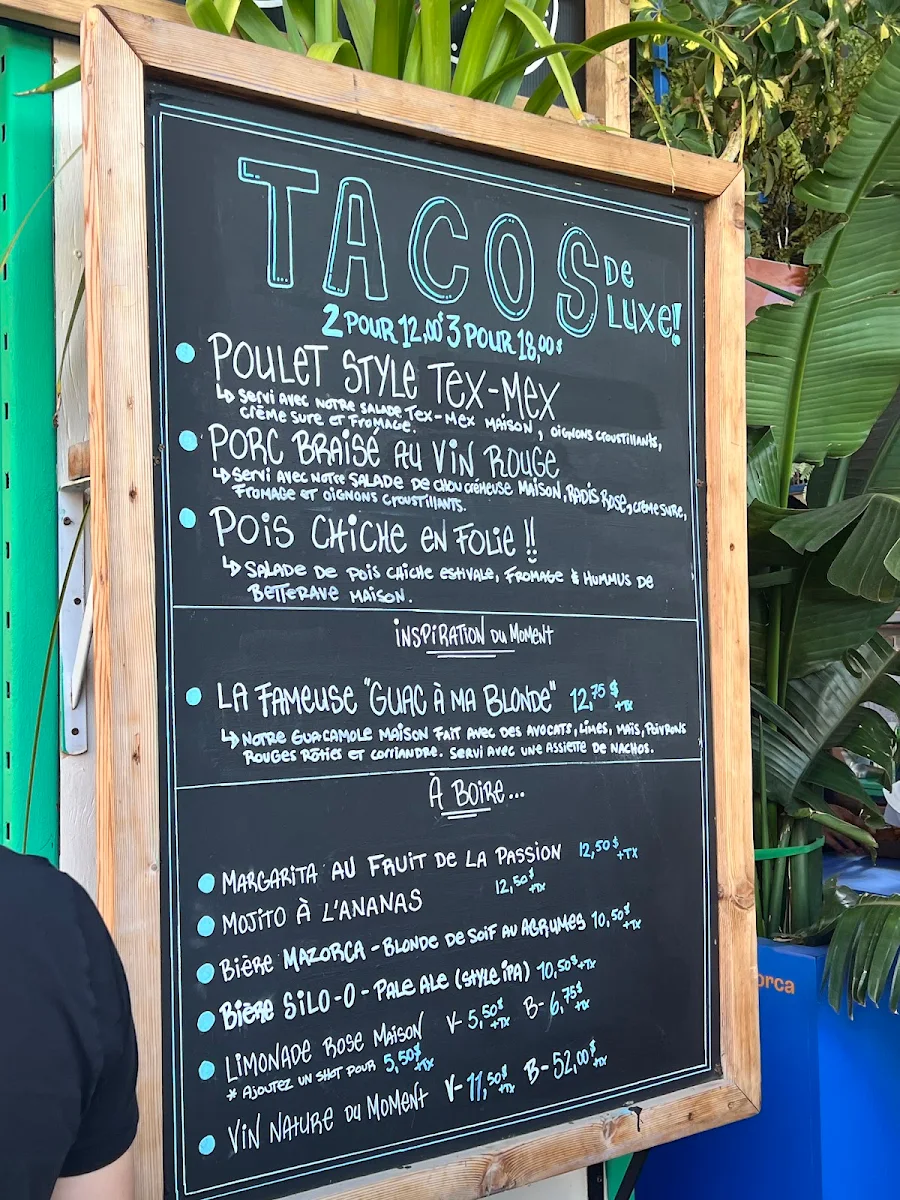 TACOS DE LUXE!
2 POUR 12,00$ 3 POUR 18,00$
POULET STYLE TEX-MEX
↳ SERVI AVEC NOTRE SALADE TEX-MEX MAISON, OIGNONS CROUSTILLANTS,
CRÈME SURE ET FROMAGE.
PORC BRAISÉ AU VIN ROUGE
↳ SERVI AVEC NOTRE SALADE DE CHOU CRÉMEUSE MAISON, RADIS ROSE, CRÈME SURE,
FROMAGE ET OIGNONS CROUSTILLANTS.
POIS CHICHE EN FOLIE !!
↳ SALADE DE POIS CHICHE ESTIVALE, FROMAGE & HUMMUS DE
BETTERAVE MAISON.
INSPIRATION DU MOMENT
LA FAMEUSE "GUAC À MA BLONDE" 12,75$ +TX
↳ NOTRE GUACAMOLE MAISON FAIT AVEC DES AVOCATS, LIMES, MAÏS, POIVRONS
ROUGES RÔTIES ET CORIANDRE. SERVI AVEC UNE ASSIETTE DE NACHOS.
À BOIRE...
MARGARITA AU FRUIT DE LA PASSION 12,50$ +TX
MOJITO À L'ANANAS 12,50$ +TX
BIÈRE MAZORCA - BLONDE DE SOIF AU AGRUMES 10,50$ +TX
BIÈRE SILO-O - PALE ALE (STYLE IPA) 10,50$ +TX
LIMONADE ROSE MAISON V- 5,50$ +TX B- 6,75$ +TX
* AJOUTEZ UN SHOT POUR 5,50$ +TX
VIN NATURE DU MOMENT V- 11,50$ +TX B- 52,00$ +TX
orca